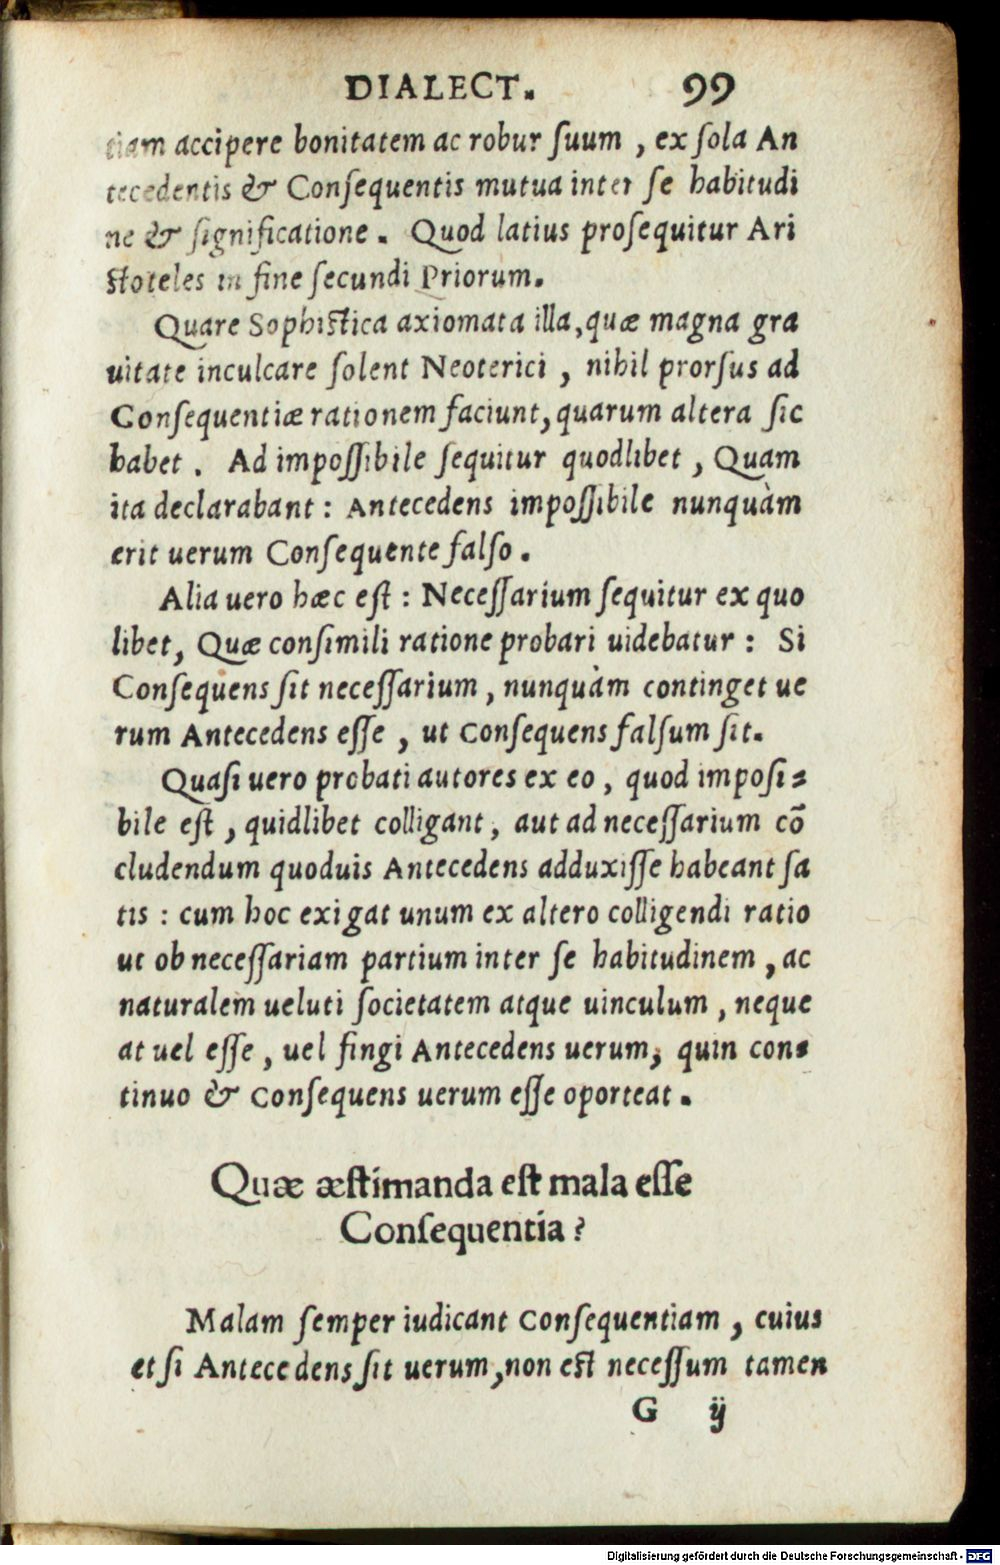 DIALECT. 99
tiam accipere bonitatem ac robur ſuum , ex ſola An
tecedentis & Conſequentis mutua inter ſe habitudi
ne & ſignificatione . Quod latius proſequitur Ari
ſtoteles in fine ſecundi Priorum.
Quare Sophiſtica axiomata illa, quæ magna gra
uitate inculcare ſolent Neoterici , nihil prorſus ad
Conſequentiæ rationem faciunt, quarum altera ſic
habet . Ad impoſſibile ſequitur quodlibet , Quam
ita declarabant : Antecedens impoſſibile nunquàm
erit uerum Conſequente falſo .
Alia uero hæc eſt : Neceſſarium ſequitur ex quo
libet, Quæ conſimili ratione probari uidebatur : Si
Conſequens ſit neceſſarium , nunquàm continget ue
rum Antecedens eſſe , ut Conſequens falſum ſit.
Quaſi uero probati autores ex eo , quod impoſi⸗
bile eſt , quidlibet colligant , aut ad neceſſarium cō
cludendum quoduis Antecedens adduxiſſe habeant ſa
tis : cum hoc exigat unum ex altero colligendi ratio
ut ob neceſſariam partium inter ſe habitudinem , ac
naturalem ueluti ſocietatem atque uinculum , neque
at uel eſſe , uel fingi Antecedens uerum, quin con⸗
tinuo & Conſequens uerum eſſe oporteat .
Quæ æſtimanda eſt mala eſſe
Conſequentia ?
Malam ſemper iudicant Conſequentiam , cuius
et ſi Antecedens ſit uerum, non eſt neceſſum tamen
G ij
Digitalisierung gefördert durch die Deutsche Forschungsgemeinschaft - DFG